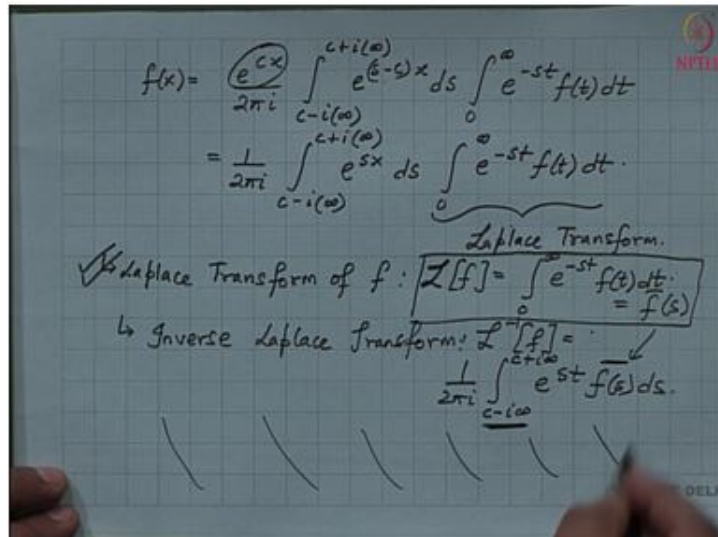 NPTEL
f(x) = e^{cx}/2πi ∫_{c-i(∞)}^{c+i(∞)} e^{(s-c)x} ds ∫_0^∞ e^{-st} f(t) dt
= 1/2πi ∫_{c-i(∞)}^{c+i(∞)} e^{sx} ds ∫_0^∞ e^{-st} f(t) dt.
Laplace Transform.
↳ Laplace Transform of f : L[f] = ∫_0^∞ e^{-st} f(t) dt.
= f̄(s)
↳ Inverse Laplace Transform: L^{-1}[f̄] =
1/2πi ∫_{c-i∞}^{c+i∞} e^{st} f̄(s) ds.
DELH